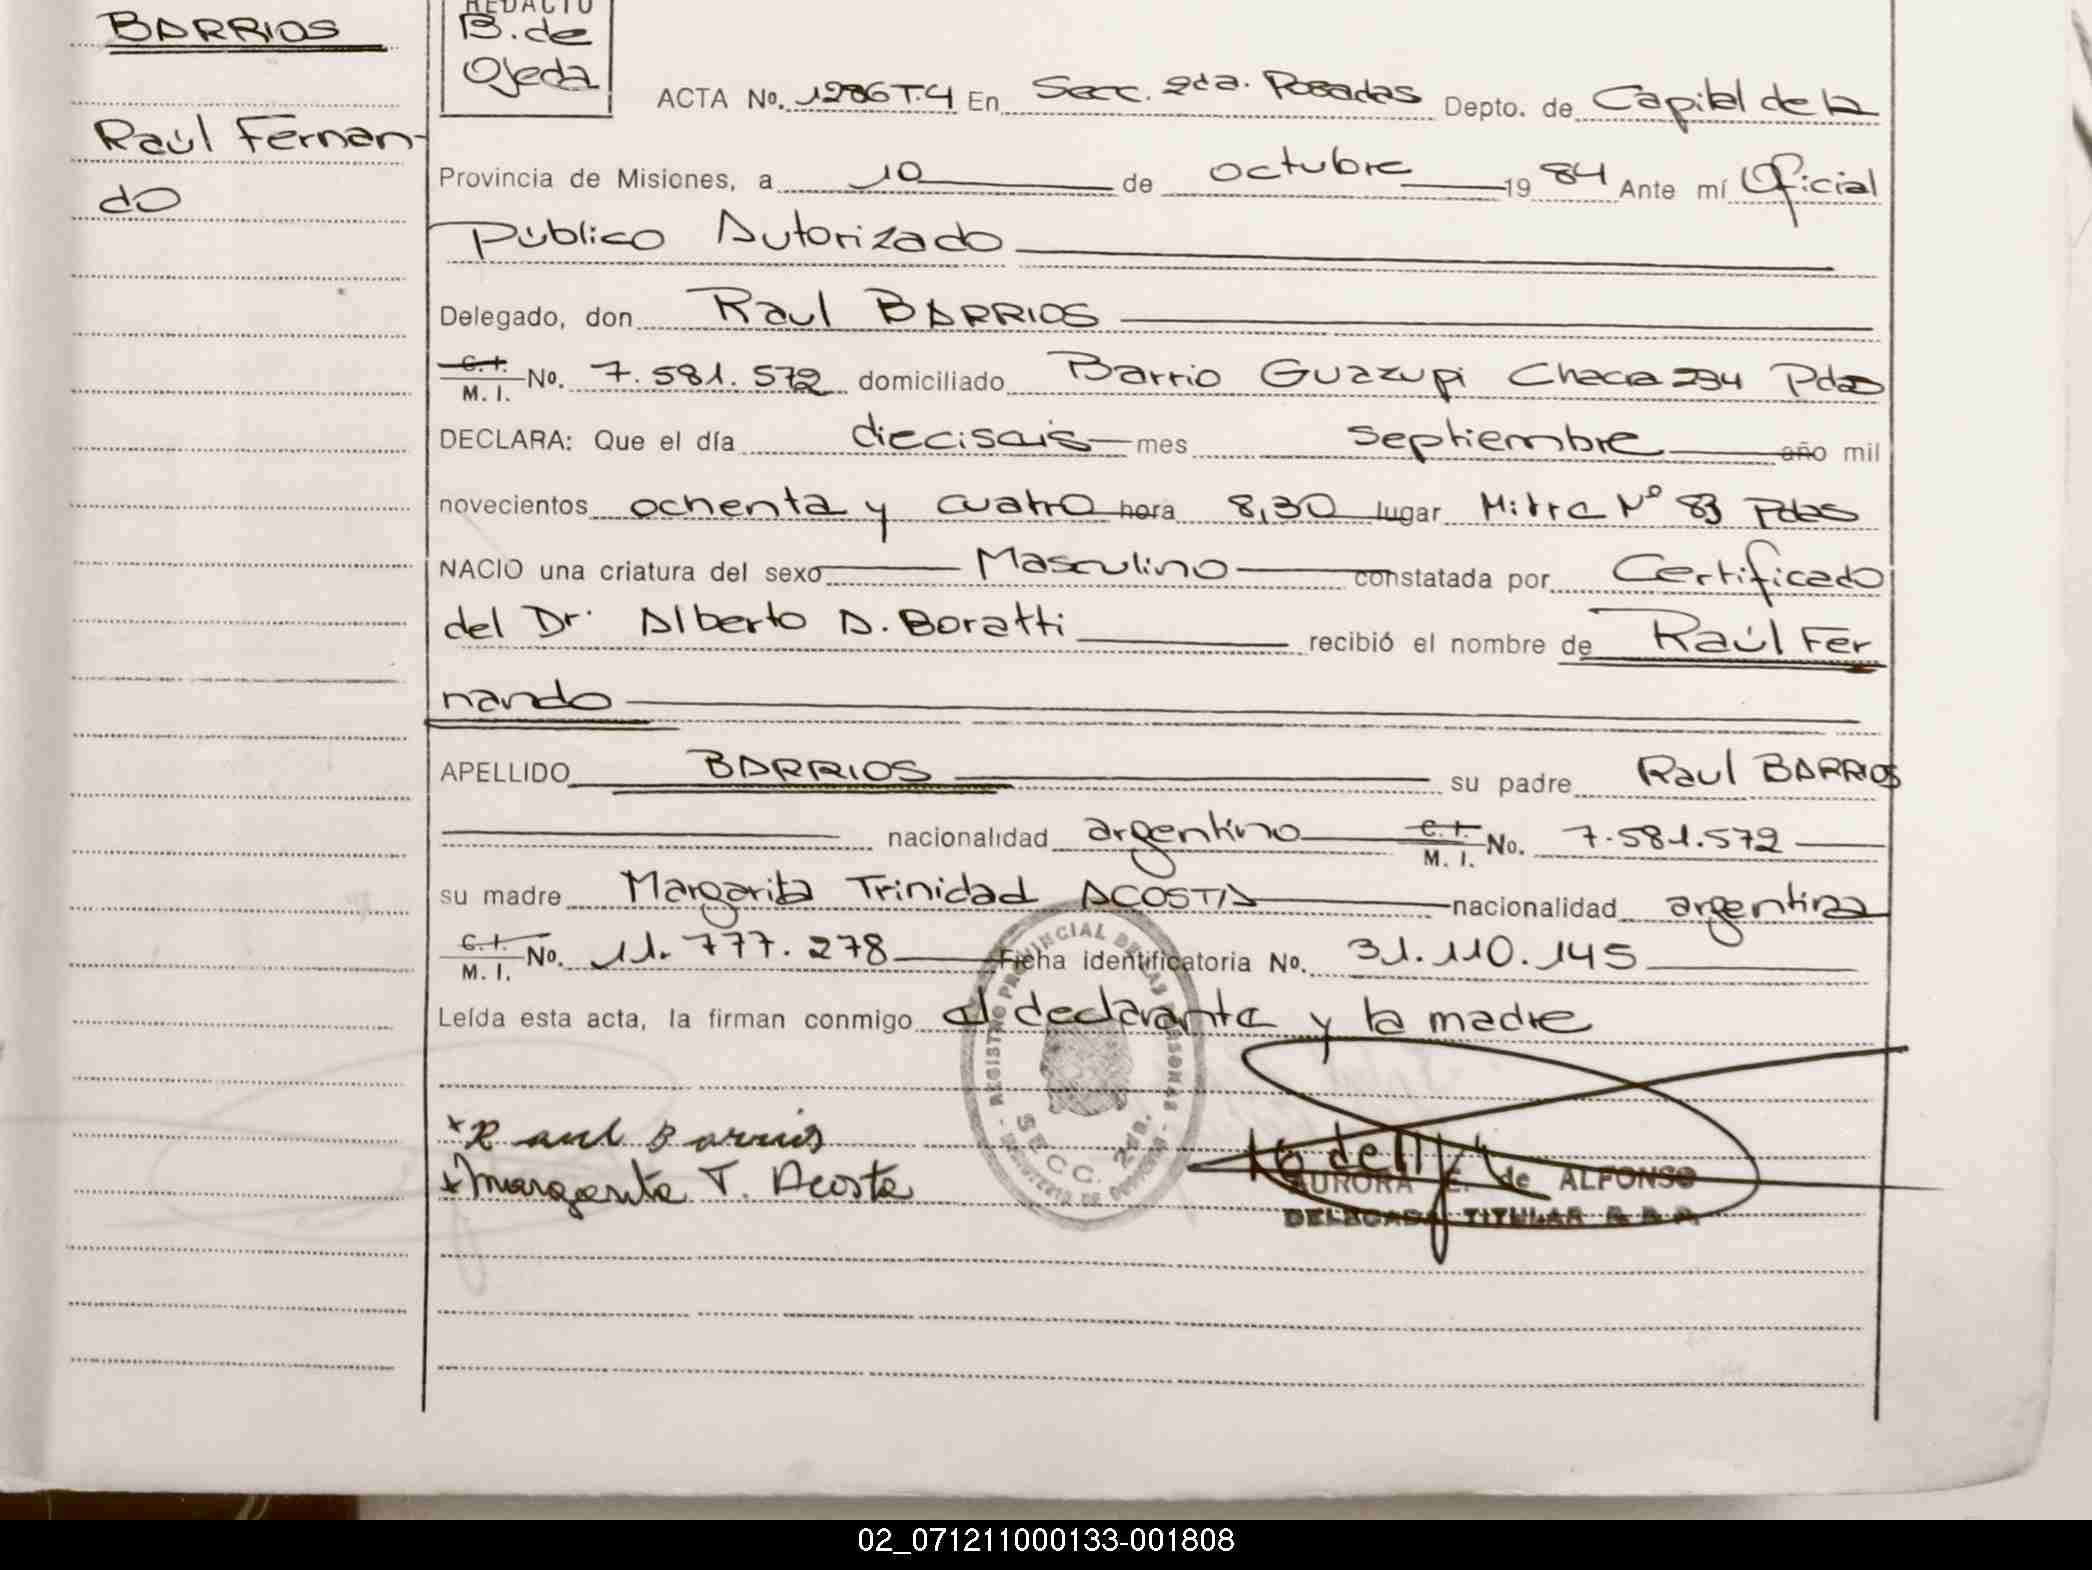 BARRIOS
Raúl Fernan-
do
REDACTO
B. de
Ojeda
ACTA No. 1286 T.4 En Secc. 2da. Posadas Depto. de Capital de la
Provincia de Misiones, a 10 de octubre 19 84 Ante mí Oficial
Público Autorizado
Delegado, don Raul BARRIOS
C.I. M.I. No. 7.581.572 domiciliado Barrio Guazupi Chacra 294 Pdas
DECLARA: Que el día dieciseis mes septiembre año mil
novecientos ochenta y cuatro hora 8,30 lugar Mitre Nº 83 Pdas
NACIO una criatura del sexo Masculino constatada por Certificado
del Dr. Alberto A. Boratti recibió el nombre de Raúl Fer
nando
APELLIDO BARRIOS su padre Raul BARRIOS
nacionalidad argentino C.I. M.I. No. 7.581.572
su madre Margarita Trinidad ACOSTA nacionalidad argentina
C.I. M.I. No. 11.777.278 Ficha identificatoria No. 31.110.145
Leída esta acta, la firman conmigo el declarante y la madre
REGISTRO PROVINCIAL DE LAS PERSONAS
SECC. 2da.
x Raul Barrios
x Margarita T. Acosta
AURORA E. de ALFONSO
DELEGADA TITULAR
02_071211000133-001808